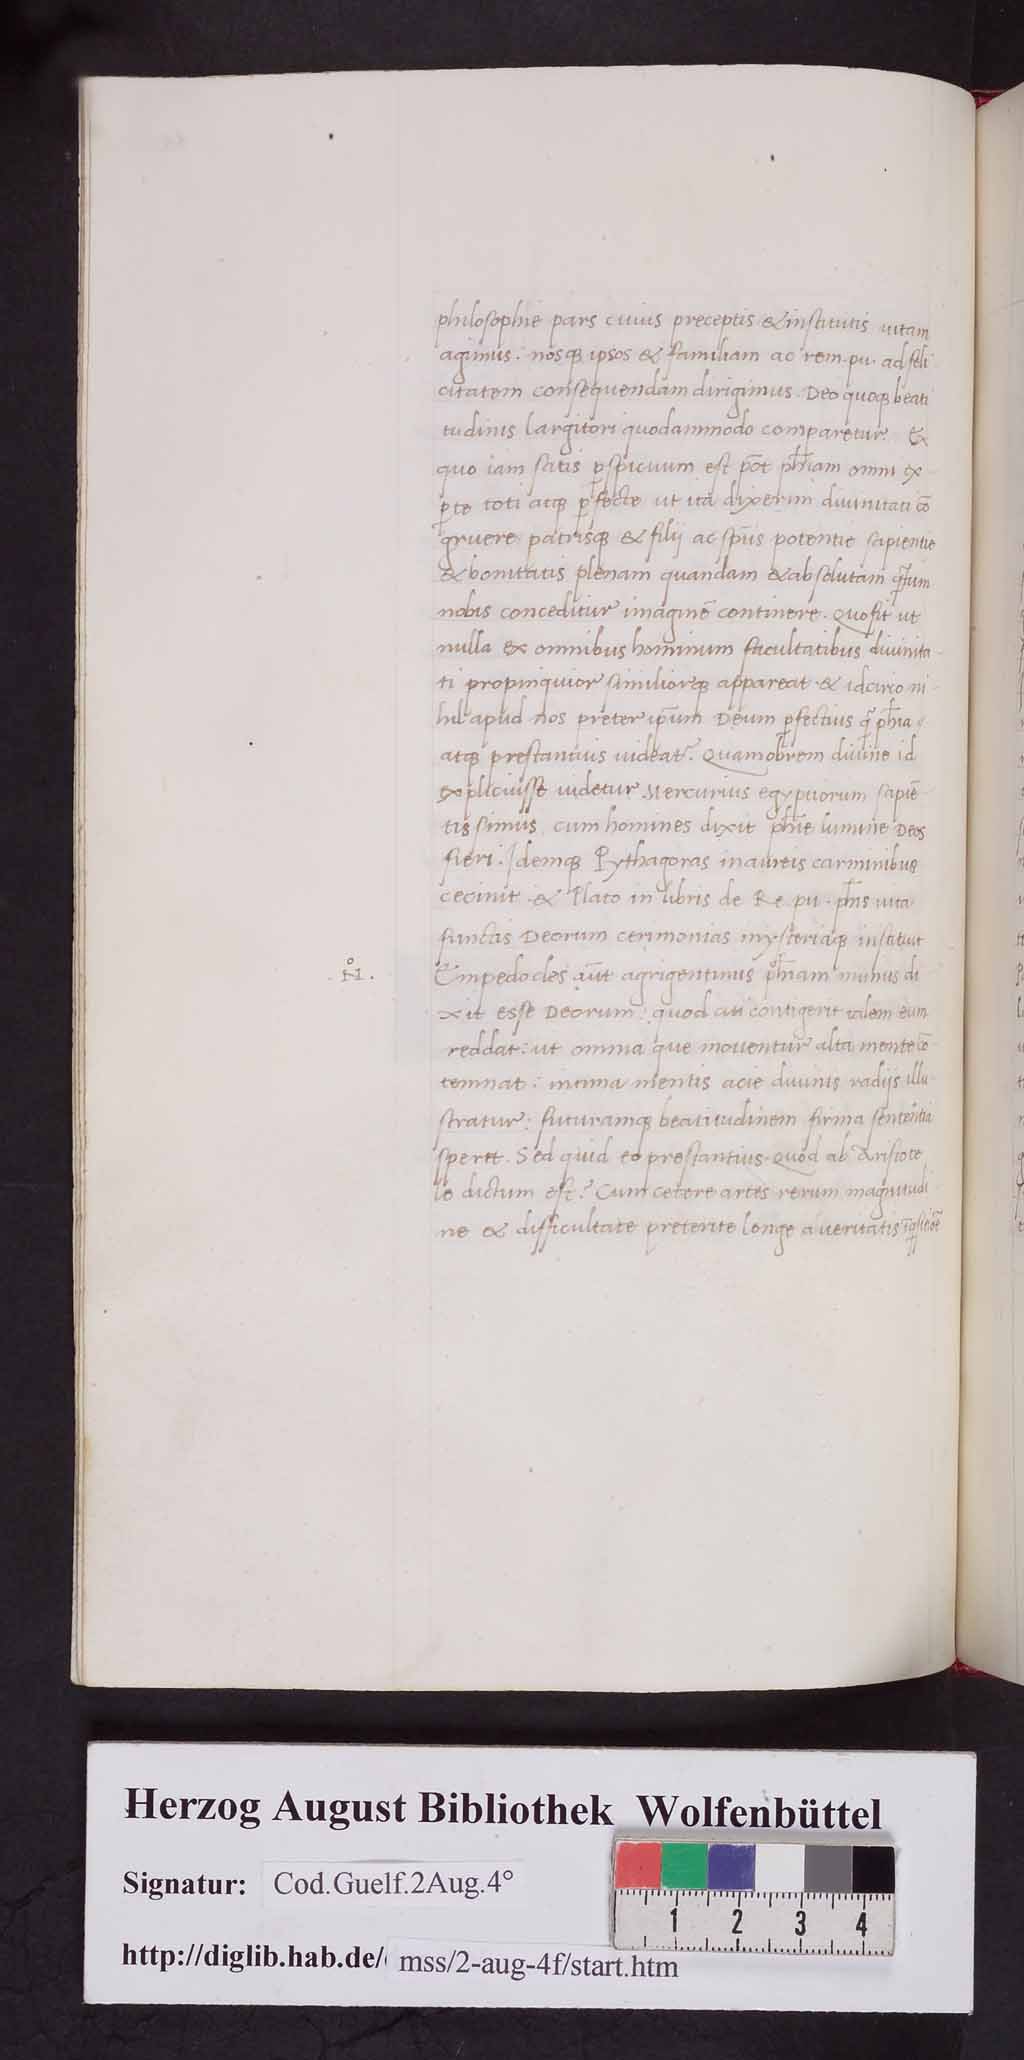 philosophie pars cuius preceptis & institutis uitam
agimus: nosq ipsos & familiam ac rem.pu. ad feli
citatem consequendam dirigimus. Deo quoq beati
tudinis largitori quodammodo comparetur. Ex
quo iam satis pspicuum est p̄ōt ph̄iam omni ex
pte toti atq pfecte ut ita dixerim diuinitati cō
gruere patrisq & filij ac sp̄us potentie sapientie
& bonitatis plenam quandam & absolutam qtum
nobis conceditur imaginē continere. Quo fit ut
nulla ex omnibus hominum facultatibus diuinita-
ti propinquior similiorq appareat & idcirco ni-
hil apud nos preter ip̄um Deum pfectius q̄ ph̄ia
atq prestantius uideat̄. Quamobrem diuine id
explicuisse uidetur Mercurius egyptiorum sapiē-
tissimus, cum homines dixit ph̄ie lumine Deos
fieri. Idemq Pythagoras in aureis carminibus
cecinit. & Plato in libris de Re. pu. ph̄is uita
functis Deorum cerimonias mysteriaq instituit
.N̊.
Empedocles aūt agrigentinus ph̄iam munus di
xit esse Deorum: quod cui contigerit talem eum
reddat: ut omnia que mouentur alta mente cō
temnat: intima mentis acie diuinis radijs illu-
stratur: futuramq beatitudinem firma sententia
speret. Sed quid eo prestantius. Quod ab Aristote
le dictum est? Cum cetere artes rerum magnitudi-
ne & difficultate preterite longe a ueritatis
Herzog August Bibliothek Wolfenbüttel
Signatur: Cod.Guelf.2Aug.4°
1 2 3 4
http://diglib.hab.de/ mss/2-aug-4f/start.htm